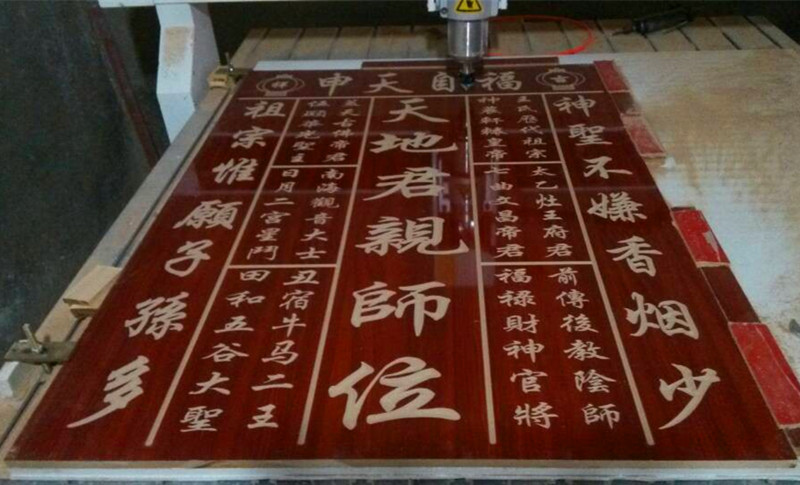 吉
福自天申
祥
神聖不嫌香烟少
王氏歷代祖宗
神農軒轅皇帝
太乙灶王府君
七曲文昌帝君
前傳後教陰師
福禄財神官將
天地君親師位
蓋天古佛帝君
伍顯華光聖主
南海觀音大士
日月二宫星鬥
丑宿牛马二王
田和五谷大聖
祖宗惟願子孫多